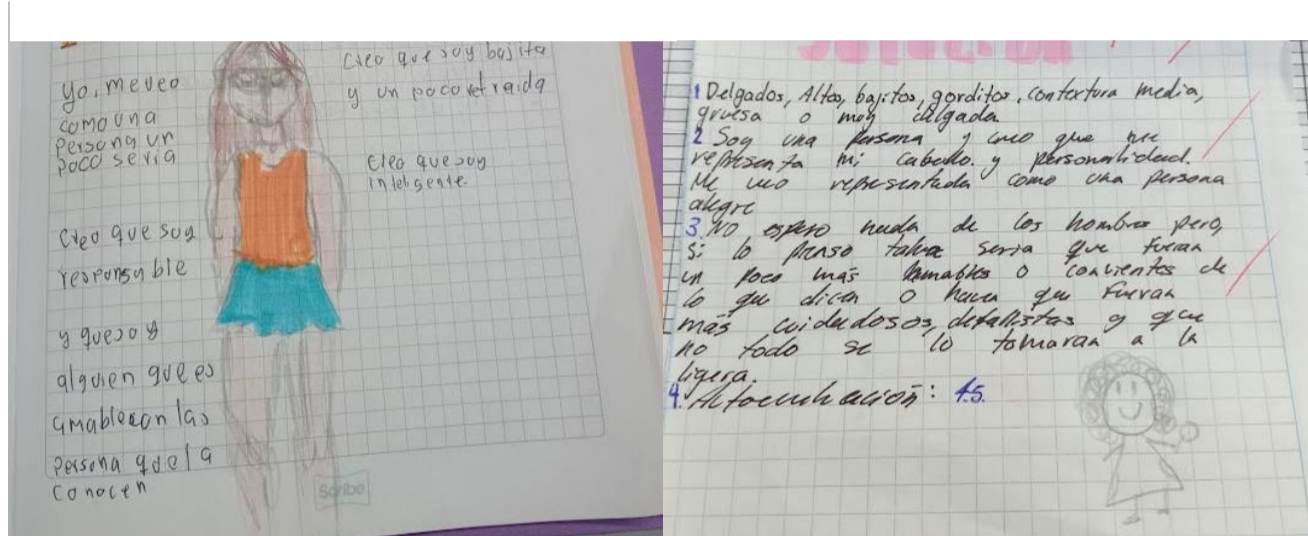 yo, me veo
como una
persona un
poco seria
Creo que soy
responsable
y que soy
alguien que es
amable con las
persona que la
conocen
Creo que soy bajita
y un poco retraida
Creo que soy
inteligente.
Scribe
1 Delgados, Altos, bajitos, gorditos, contextura media,
gruesa o muy delgada.
2 Soy una persona y creo que me
representa mi cabello y personalidad.
Me veo representada como una persona
alegre
3. No espero nada de los hombres pero,
si lo pienso talvez seria que fueran
un poco más amables o concientes de
lo que dicen o hacen que fueran
más cuidadosos, detallistas y que
no todo se lo tomaran a la
ligera.
4. Autoevaluación: 4.5.